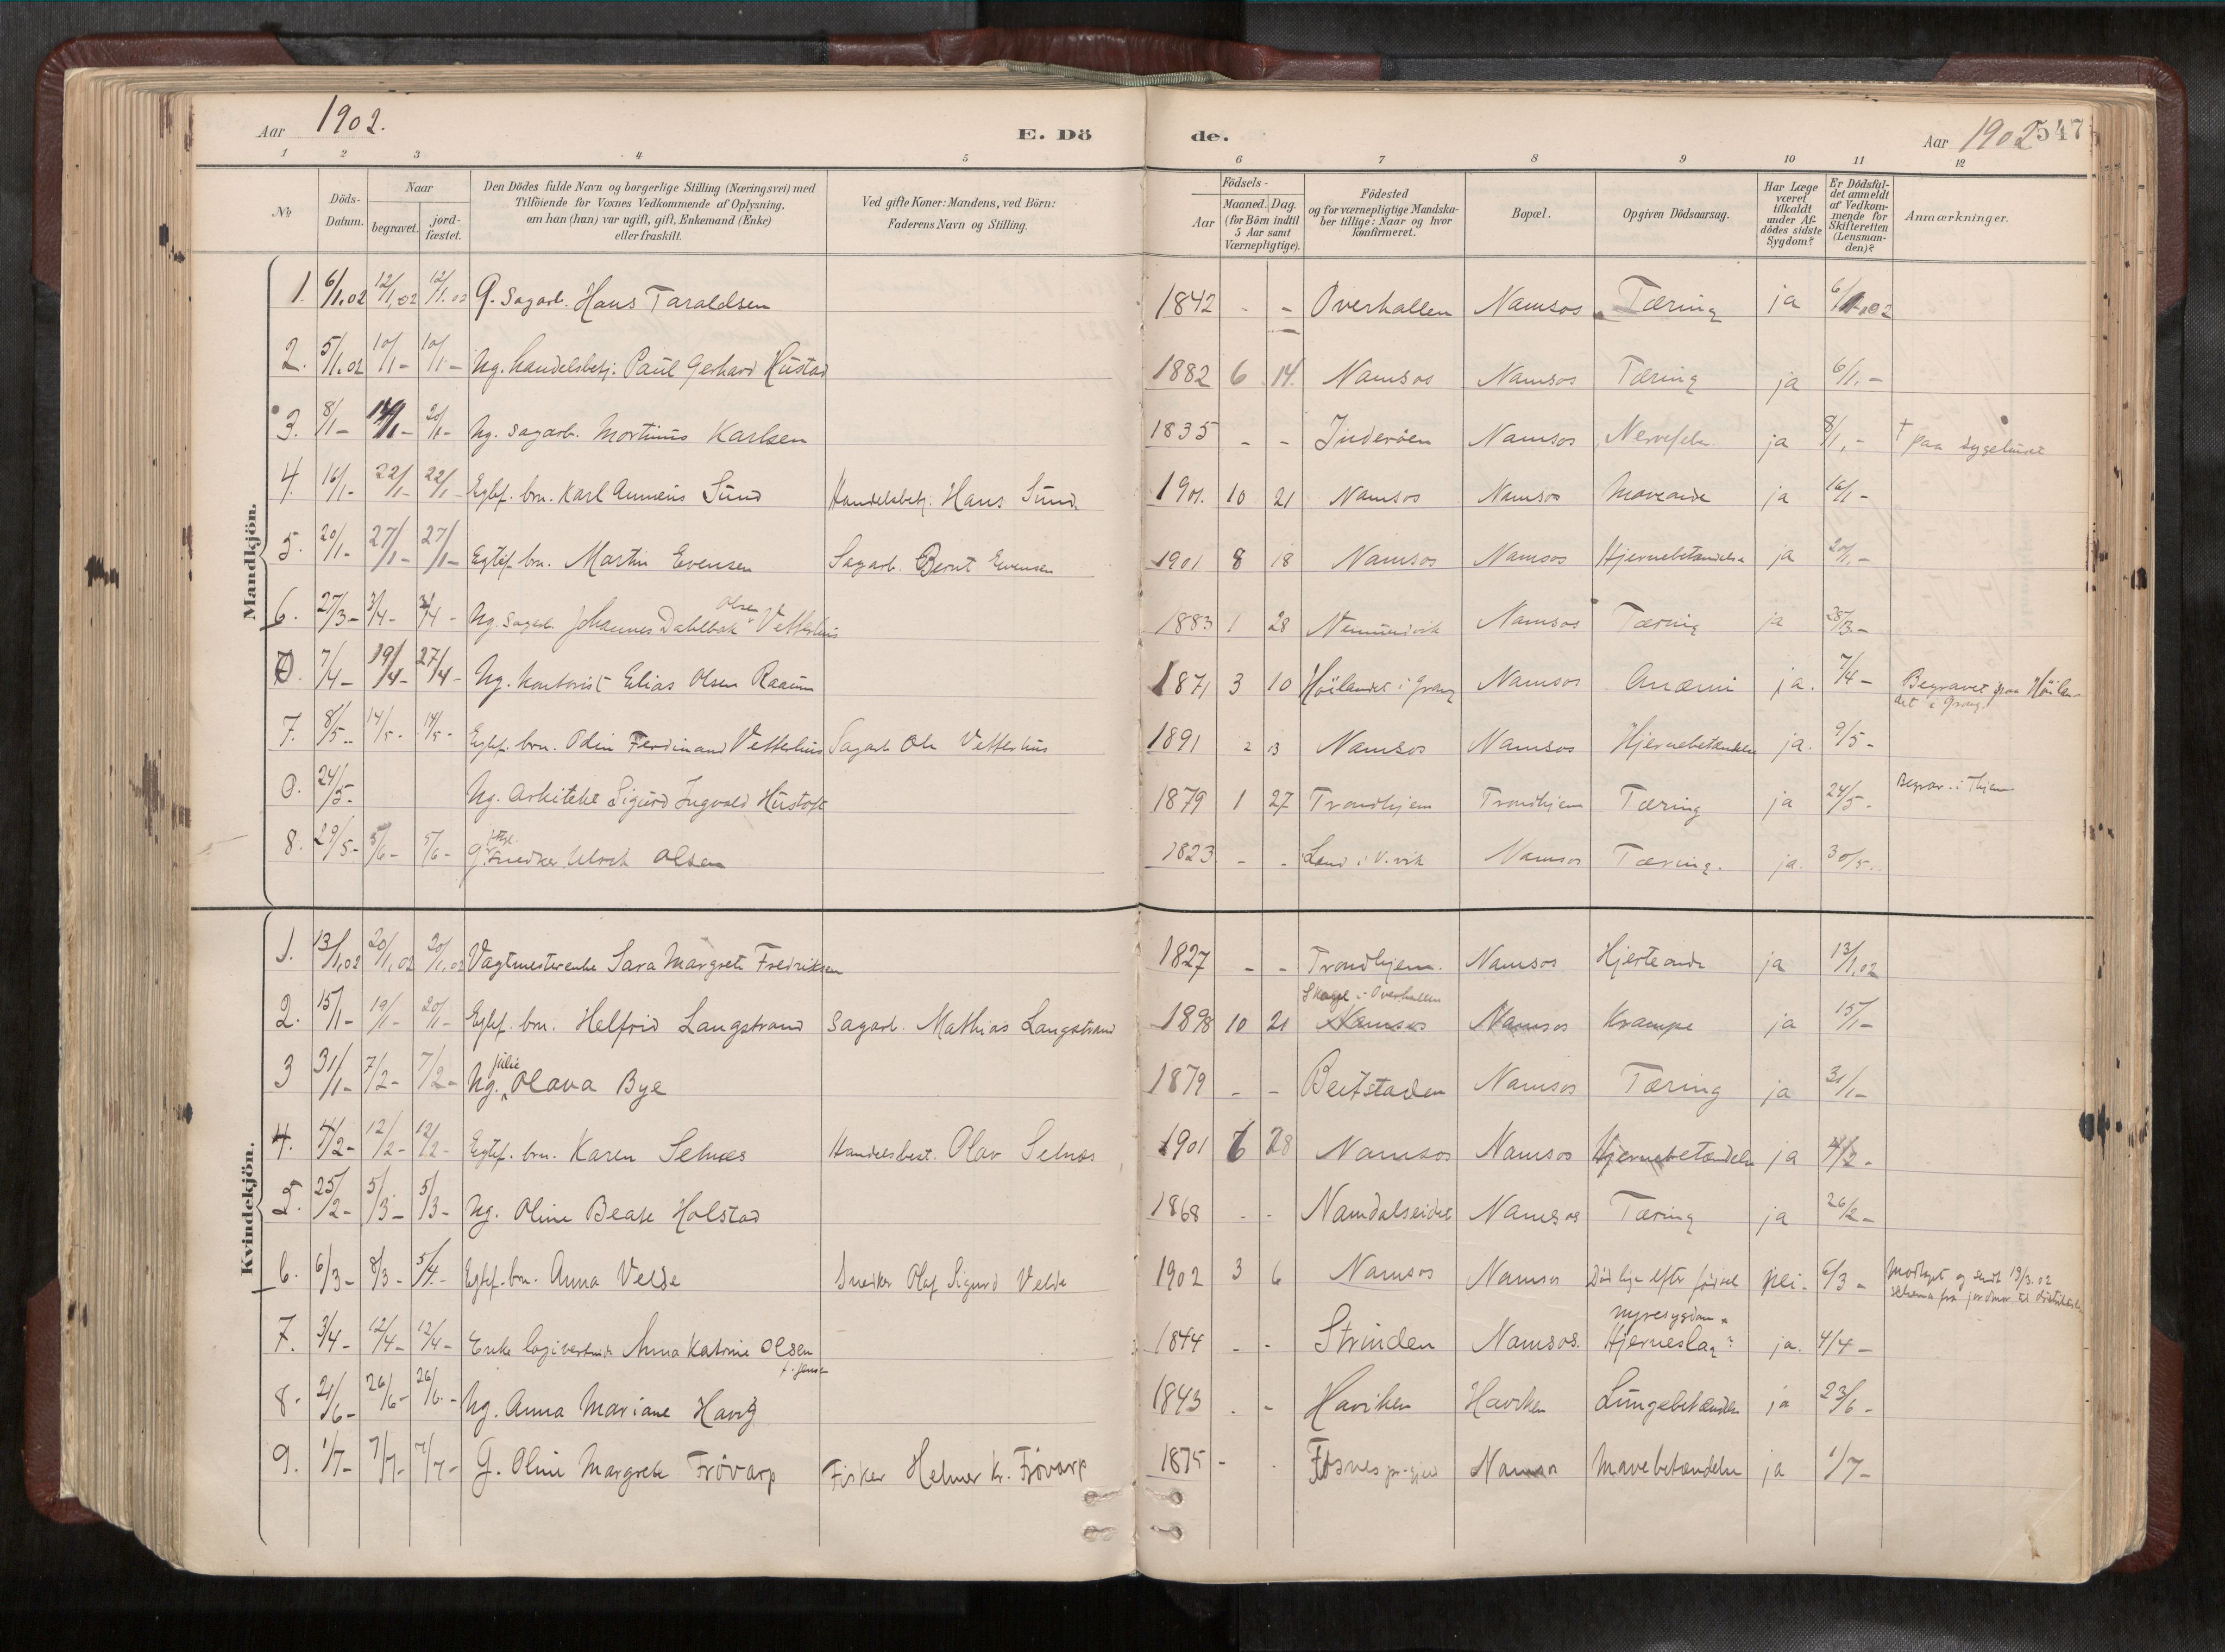 Aar 1902.
E. Dö
de.
Aar 1902
547
1 2 3 4 5 6 7 8 9 10 11 12
№
Döds-Datum.
Naar
begravet.
jord-fæstet.
Den Dödes fulde Navn og borgerlige Stilling (Næringsvei) med
Tilföiende for Voxnes Vedkommende af Oplysning,
om han (hun) var ugift, gift, Enkemand (Enke)
eller fraskilt.
Ved gifte Koner: Mandens, ved Börn:
Faderens Navn og Stilling.
Födsels-
Aar
Maaned. Dag.
(for Börn indtil
5 Aar samt
Værnepligtige).
Födested
og for værnepligtige Mandska-
ber tillige: Naar og hvor
Konfirmeret.
Bopæl.
Opgiven Dödsaarsag.
Har Læge
været
tilkaldt
under Af-
dödes sidste
Sygdom?
Er Dödsfal-
det anmeldt
af Vedkom-
mende for
Skifteretten
(Lensman-
den)?
Anmærkninger.
Mandkjön.
1. 6/1.02 12/1.02 12/1.02 G. Sagarb. Hans Taraldsen 1842 - - Overhallen Namsos Tæring ja 6/1.02
2. 5/1.02 10/1- 10/1- Ug. handelsbetj. Paul Gerhard Hustad 1882 6 14. Namsos Namsos Tæring ja 6/1.-
3. 8/1- 20/1- Ug. sagarb. Mortinus Karlsen 1835 - - Inderöen Namsos ja 8/1.- † paa sygehuset
4. 16/1- 22/1- 22/1- Egtef. brn. Karl Anneus Sund Handelsbetj. Hans Sund. 1901. 10 21 Namsos Namsos Maveonde ja 16/1-
5. 20/1- 27/1- 27/1- Egtef. brn. Martin Evensen Sagarb. Bernt Evensen 1901 8 18 Namsos Namsos Hjernebetændelse ja 20/1.-
6. 27/3- 3/4- 3/4- Ug. Sagarb. Johannes Dahlbak Olsen Vetterhus 1883 1 28 Namsos Tæring ja 28/3.-
0. 7/4- 19/4- 27/4- Ug. Kontorist Elias Olsen Raaum 1871 3 10 Höilandet i Grong Namsos Anæmi ja. 7/4- Begravet paa Höilan-
det i Grong.
7. 8/5- 14/5- 14/5- Egtef. brn. Odin Ferdinand Vetterhus Sagarb Ole Vetterhus 1891 2 13 Namsos Namsos Hjernebetændelse ja. 9/5-
0. 24/5- Ug. Arkitekt Sigurd Ingvald Hustoft 1879 1 27 Trondhjem Trondhjem Tæring ja 24/5- Begrav. i Thjem
8. 29/5- 5/6- 5/6- G. Snedker Ulrik Olsen 1823 - - Namsos Tæring. ja. 30/5.
Kvindekjön.
1. 13/1.02 20/1.02 20/1.02 Vagtmesterenke Sara Margrete Fredriksen 1827 - - Trondhjem. Namsos Hjerteonde ja 13/1.02
Skage i Overhallen
2. 15/1- 19/1- 20/1- Egtef. brn. Helfrid Langstrand Sagarb. Mathias Langstrand 1898 10 21 Namsos Namsos Krampe ja 15/1-
3 31/1- 7/2- 7/2- Ug. Julie Olava Bye 1879 - - Beitstaden Namsos Tæring ja 31/1-
4. 4/2- 12/2- 12/2- Egtef. brn. Karen Selnæs Handelsbest. Olav Selnæs 1901 6 28 Namsos Namsos Hjernebetændelse ja 4/2-
5. 25/2- 5/3- 5/3- Ug. Oline Beate Holstad 1868 - - Namdalseidet Namsos Tæring ja 26/2-
6. 6/3- 8/3- 5/4- Egtef. brn. Anna Velde Snedker Olaf Sigurd Velde 1902 3 6 Namsos Namsos Död lige efter födsel nei. 6/3- Modtaget og sendt 13/3.02
schema fra jordmor til
7. 3/4- 12/4- 12/4- Enke Anna Katrine Olsen f. Jensen 1844 - - Strinden Namsos. Nyresygdom Hjerneslag? ja. 4/4-
8. 21/6- 26/6- 26/6- Ug. Anna Mariane Havig 1843 - - Haviken Haviken Lungebetændelse ja 23/6-
9. 1/7- 7/7- 7/7- G. Oline Margrete Frövarp Fisker Helmer Kr. Frövarp 1875 - - Fosnes pr.gjeld Namsos Mavebetændelse ja 1/7-